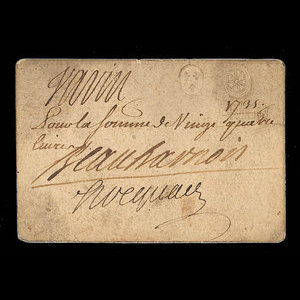 Varin
1735.
Pour la Somme de Vingt quatre
Livres
Beauharnois
Hocquart